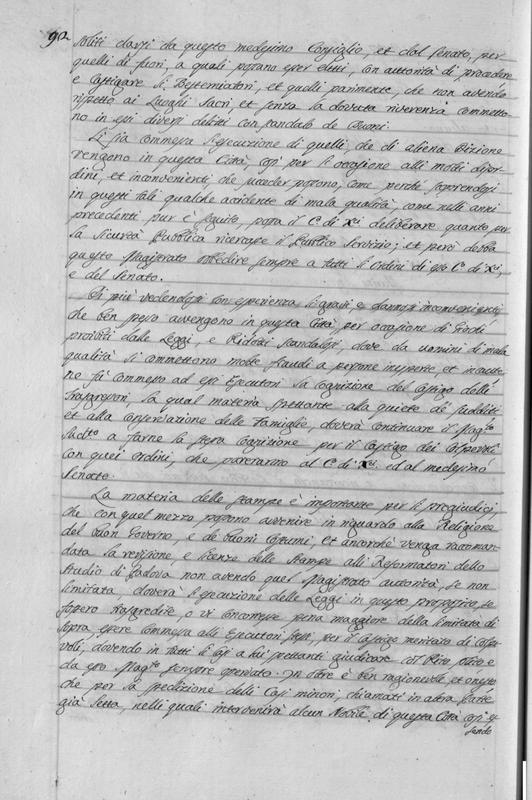 90
soliti darsi da questo medesimo Consiglio, et dal Senato, per
quelli di fuori, a quali possano esser eletti, con autorità di procedere
e Castigare li Bestemiatori, et quelli parimente, che non avendo
rispetto ai Luoghi Sacri, et senza la dovuta riverenza commetto-
no in essi diversi delitti con scandalo de Buoni.
Li sia commessa l'esecuzione di quelli, che di aliena Dizione
vengono in questa Città, così per l'occasione alli molti disor-
dini, et inconvenienti, che succeder possono, come perchè scoprendosi
in questi tali qualche accidente di mala qualità, come nelli anni
precedenti pur è seguito, possa il C. di X.ci deliberare quanto per
la Sicurtà Pubblica ricercasse il Publico Servizio; et però debba
questo Magistrato obbedire sempre a tutti li Ordini di esso C. di X.ci,
e del Senato.
Di più vedendosi con esperienza li gravi, e dannosi inconvenienti,
che ben spesso avvengono in questa Città per occasione di Giochi
proibiti dalle Leggi, e Ridotti scandalosi, dove da uomini di mala
qualità si commettono molte fraudi a persone inesperte, et incaute
ne fù commesso ad essi Esecutori la Cognizione del Castigo delli
Trasgressori, la qual materia spettante alla quiete de Sudditi
et alla Conservazione delle Famiglie, doverà continuare il Mag.to
sud.to a farne la stessa Cognizione per il Castigo dei Colpevoli
con quei ordini, che pareranno al C. di X.ci, ed al medesimo
Senato.
La materia delle stampe è importante per li pregiudici,
che con quel mezzo possono avvenire in riguardo alla Religione
del buon Governo, e de buoni Costumi, et ancorchè venga raccoman-
data la revisione, e licenze delle Stampe alli Reformatori dello
Studio di Padova non avendo quel Magistrato autorità, se non
limitata, doverà l'esecuzione delle Leggi in questo proposito, se
fossero trasgredite, o vi concorresse pena maggiore della limitata di
sopra, essere commessa alli Esecutori sud.ti, per il castigo meritato di Colpe-
voli, dovendo in tutti li casi a lui spettanti giudicare col Rito solito e
da esso Mag.to sempre osservato. In oltre è ben ragionevole, et onesto
che per la spedizione delli Casi minori, chiamati in altra parte
già letta, nelli quali intervenirà alcun Nobile di questa Città così es-
sendo